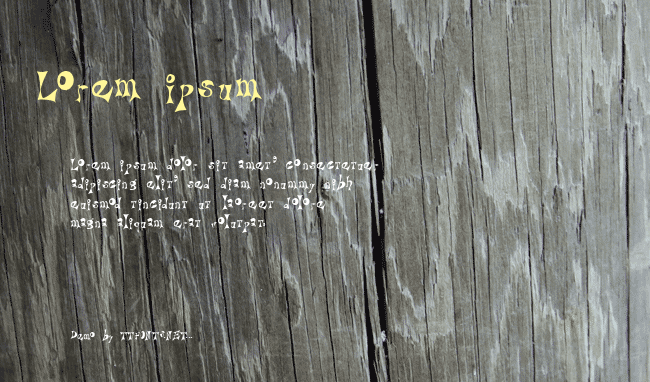 Lorem ipsum
Lorem ipsum dolor sit amet, consectetuer
adipiscing elit, sed diam nonummy nibh
euismod tincidunt ut laoreet dolore
magna aliquam erat volutpat.
Demo by TTFONT.NET...